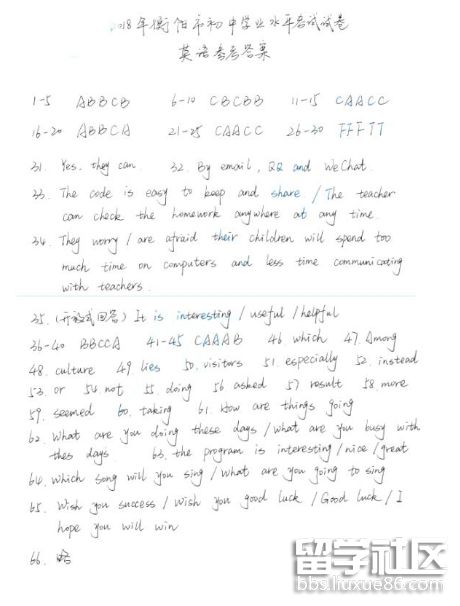 2018年衡阳市初中学业水平考试试卷
英语参考答案
1-5 ABBCB 6-10 CBCBB 11-15 CAACC
16-20 ABBCA 21-25 CAACC 26-30 FFFTT
31. Yes. they can. 32. By email, QQ and WeChat.
33. The code is easy to keep and share / The teacher
can check the homework anywhere at any time.
34. They worry / are afraid their children will spend too
much time on computers and less time communicating
with teachers.
35. (开放式回答) It is interesting / useful / helpful
36-40 BBCCA 41-45 CAAAB 46 which 47. Among
48. culture 49. lies 50. visitors 51. especially 52. instead
53. or 54. not 55. doing 56 asked 57 result 58 more
59. seemed 60. taking 61. How are things going
62. What are you doing these days / what are you busy with
thes days 63. the program is interesting / nice / great
64. Which song will you sing / what are you going to sing
65. Wish you success / Wish you good luck / Good luck / I
hope you will win
66. 略
留学社区
bbs.liuxue86.com